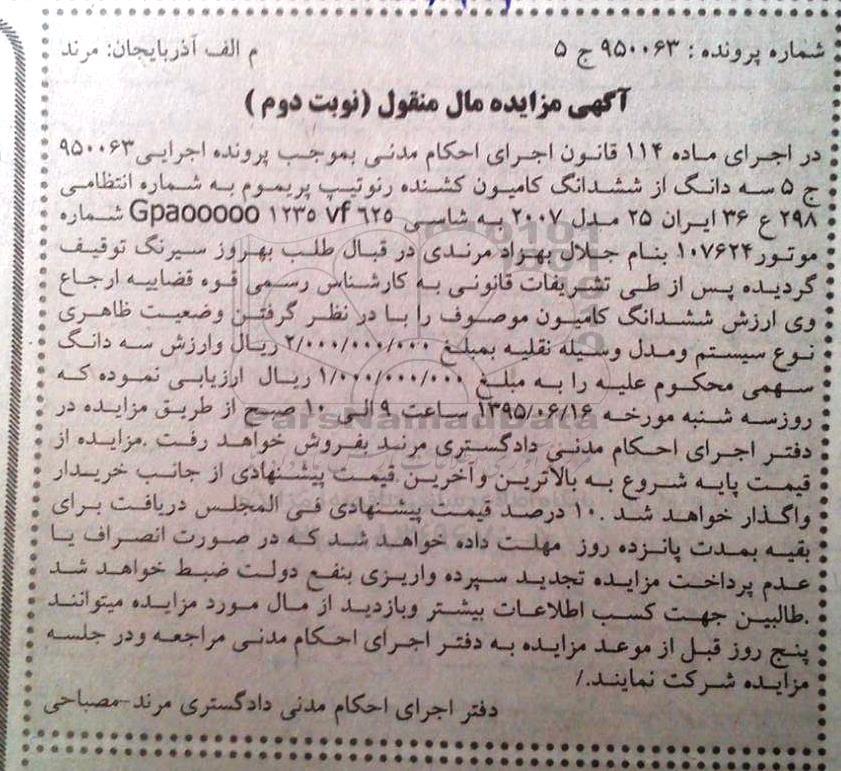 شماره پرونده : ۹۵۰۰۶۳ ج ۵
م الف آذربایجان: مرند
آگهی مزایده مال منقول (نوبت دوم )
در اجرای ماده ۱۱۴ قانون اجرای احکام مدنی بموجب پرونده اجرایی ۹۵۰۰۶۳
ج ۵ سه دانگ از ششدانگ کامیون کشنده رنوتیپ پریموم به شماره انتظامی
۲۹۸ ع ۳۶ ایران ۲۵ مدل ۲۰۰۷ به شاسی Gpaooooo ۱۲۳۵ vf ٦۲۵ شماره
موتور ۱۰۷۶۲۴ بنام جلال بهزاد مرندی در قبال طلب بهروز سیرنگ توقیف
گردیده پس از طی تشریفات قانونی به کارشناس رسمی قوه قضاییه ارجاع
وی ارزش ششدانگ کامیون موصوف را با در نظر گرفتن وضعیت ظاهری
نوع سیستم ومدل وسیله نقلیه بمبلغ ۲/۰۰۰/۰۰۰/۰۰۰ ریال وارزش سه دانگ
سهمی محکوم علیه را به مبلغ ۱/۰۰۰/۰۰۰/۰۰۰ ریال ارزیابی نموده که
روزسه شنبه مورخه ۱۳۹۵/۰۶/۱۶ ساعت ۹ الی ۱۰ صبح از طریق مزایده در
دفتر اجرای احکام مدنی دادگستری مرند بفروش خواهد رفت .مزایده از
قیمت پایه شروع به بالاترین وآخرین قیمت پیشنهادی از جانب خریدار
واگذار خواهد شد .۱۰ درصد قیمت پیشنهادی فی المجلس دریافت برای
بقیه بمدت پانزده روز مهلت داده خواهد شد که در صورت انصراف یا
عدم پرداخت مزایده تجدید سپرده واریزی بنفع دولت ضبط خواهد شد
.طالبین جهت کسب اطلاعات بیشتر وبازدید از مال مورد مزایده میتوانند
پنج روز قبل از موعد مزایده به دفتر اجرای احکام مدنی مراجعه ودر جلسه
مزایده شرکت نمایند./
دفتر اجرای احکام مدنی دادگستری مرند-مصباحی